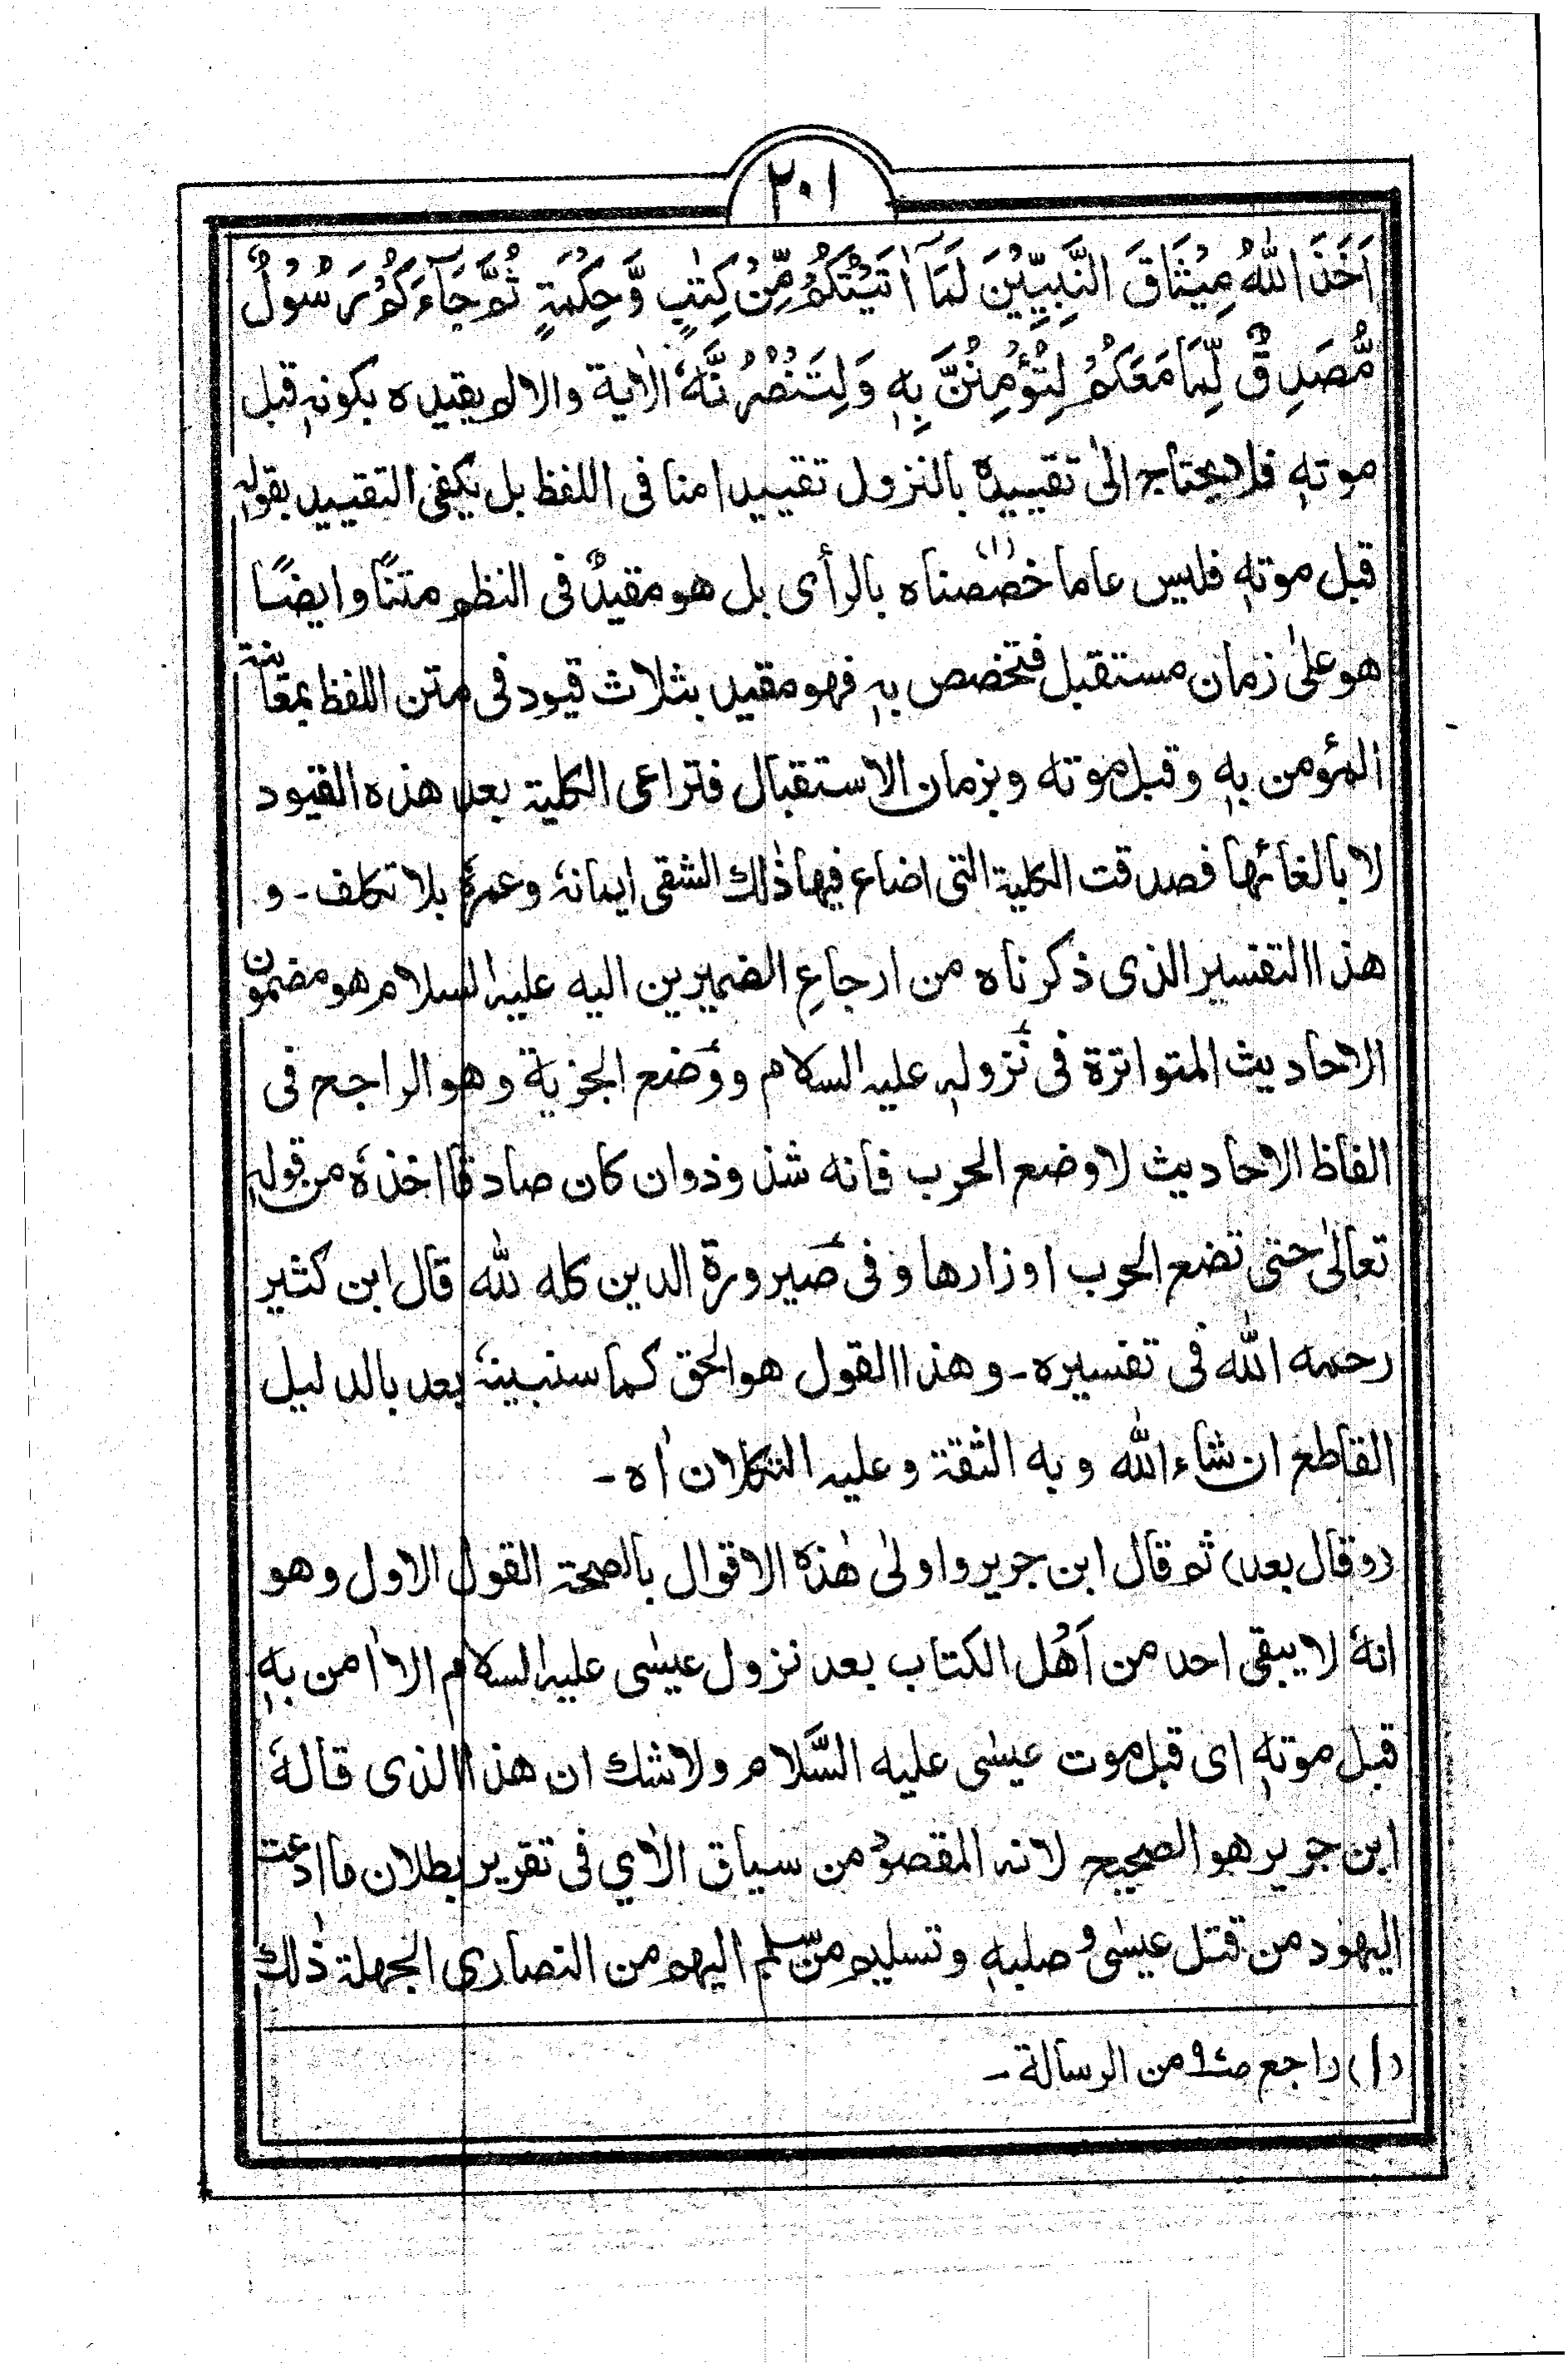 ٢٠١
اَخَذَ اللّٰهُ مِيْثَاقَ النَّبِيِّيْنَ لَمَآ اٰتَيْتُكُمْ مِّنْ كِتٰبٍ وَّحِكْمَةٍ ثُمَّ جَآءَكُمْ رَسُوْلٌ
مُّصَدِّقٌ لِّمَا مَعَكُمْ لَتُؤْمِنُنَّ بِهٖ وَلَتَنْصُرُنَّهٗ الاٰية والا لم يقيده بكونهٖ قبل
موتهٖ فلا يحتاج الىٰ تقييده بالنزول تقييدا منا فى اللفظ بل يكفى التقييد بقولهٖ
قبل موتهٖ فليس عاما خصصناه (١) بالرأى بل هو مقيدٌ فى النظم متنًا وايضًا
هو علىٰ زمان مستقبل فتخصص بهٖ فهو مقيد بثلاث قيود فى متن اللفظ بمقاينة
المؤمن بهٖ وقبل موته وبزمان الاستقبال فتراعى الكلية بعد هذه القيود
لا بالغائها فصدقت الكلية التى اضاع فيها ذٰلك الشقى ايمانهٗ وعمرهٗ بلا تكلف ـ و
هذا التفسير الذى ذكرناه من ارجاعِ الضميرين اليه عليه السلام هو مضمون
الاحاديث المتواترة فى نزولهٖ عليه السلام ووضع الجزية وهو الراجح فى
الفاظ الاحاديث لا وضع الحرب فانه شذوذ وان كان صادقا اخذهٗ من قولهٖ
تعالىٰ حتى تضع الحرب اوزارها وفى صيرورة الدين كله لله قال ابن كثير
رحمه الله فى تفسيره ـ وهذا القول هو الحق كما سنبينهٗ بعد بالدليل
القاطع ان شاء الله وبه الثقة وعليه التكلان اه ـ
(وقال بعد) ثم قال ابن جرير واولىٰ هٰذه الاقوال بالصحة القول الاول وهو
انهٗ لا يبقى احد من اَهْل الكتاب بعد نزول عيسٰى عليه السلام الا اٰمن بهٖ
قبل موتهٖ اى قبل موت عيسٰى عليه السَّلام ولا شك ان هذا الذى قالهٗ
ابن جرير هو الصحيح لانه المقصود من سياق الاٰي فى تقرير بطلان ما ادعت
اليهود من قتل عيسٰى وصلبهٖ وتسليم من سلّم اليهم من النصارى الجهلة ذٰلك
(١) راجع من الرسالة ـ